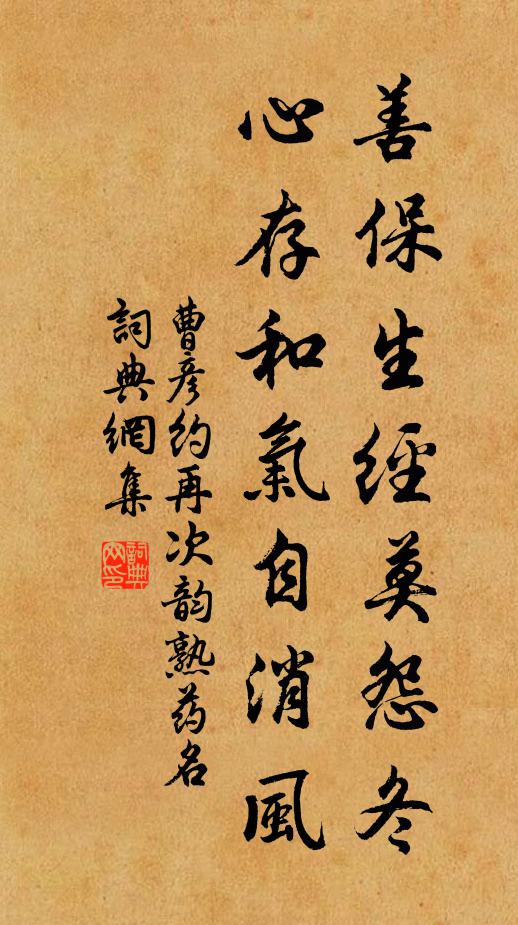 善保生經莫怨冬
心存和氣自消風
曹彦約再次韵熟药名
詞典網集
詞典網印